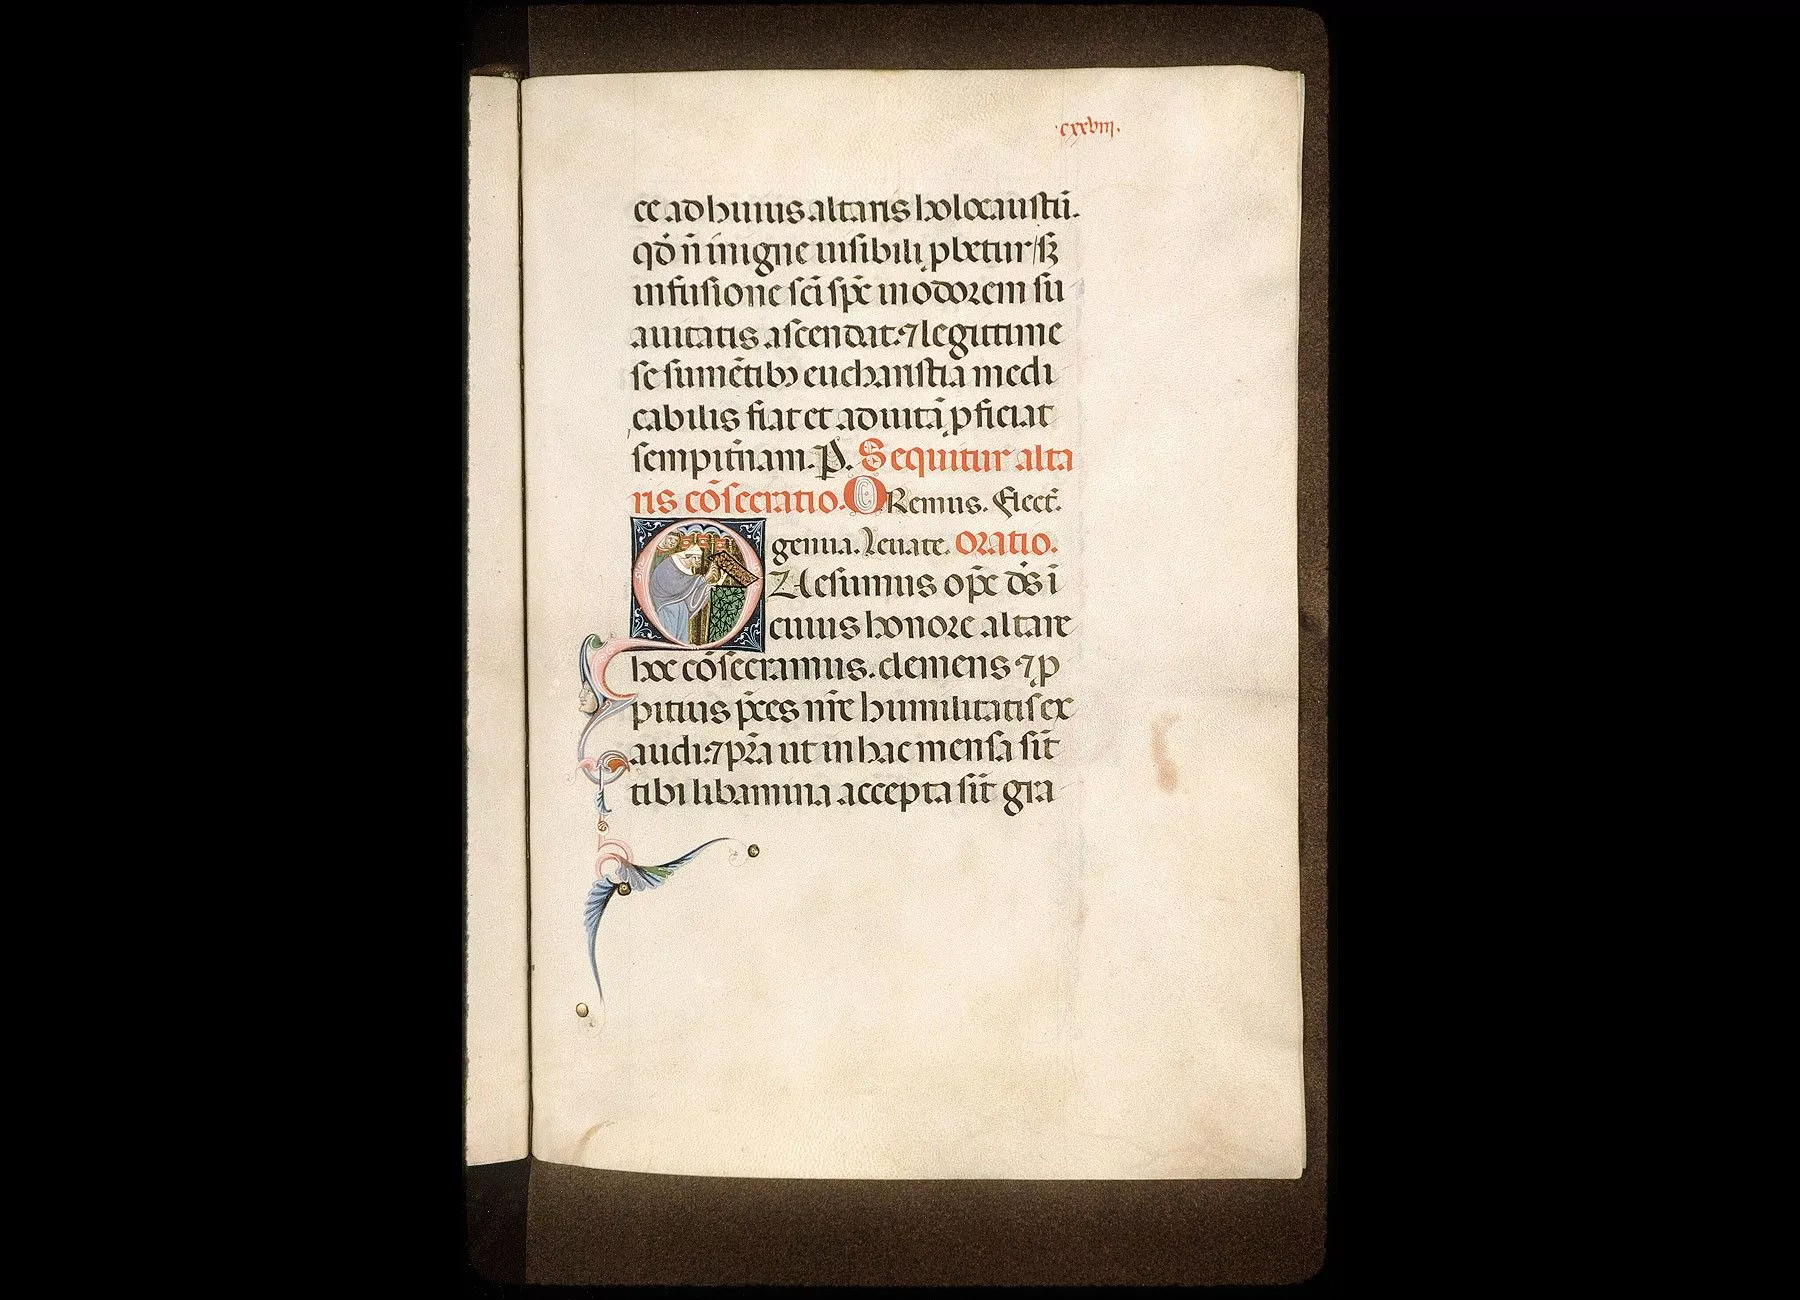 ·cxxviii·
ce ad huius altaris holocaustū.
qd̄ n̄ inigne uisibili ꝓbetur / sꝫ
infusione sc̄i sp̄c inodorem su
auitatis ascendat: ⁊ legittime
se sumētibꝫ eucharistia medi
cabilis fiat et ad uitā ꝓficiat
sempit̄nam. P. Sequitur alta
ris cōsecratio. ORemus. Flect̄.
genua. leuate. Oratio.
Desumus op̄c ds̄ ī
cuius honore altare
hoc cōsecramus. clemens ⁊ ꝓ
pitius p̄ces nr̄e humilitatis ex
audi: ⁊ pr̄a ut in hac mensa sīt
tibi libamina accepta sīt gra